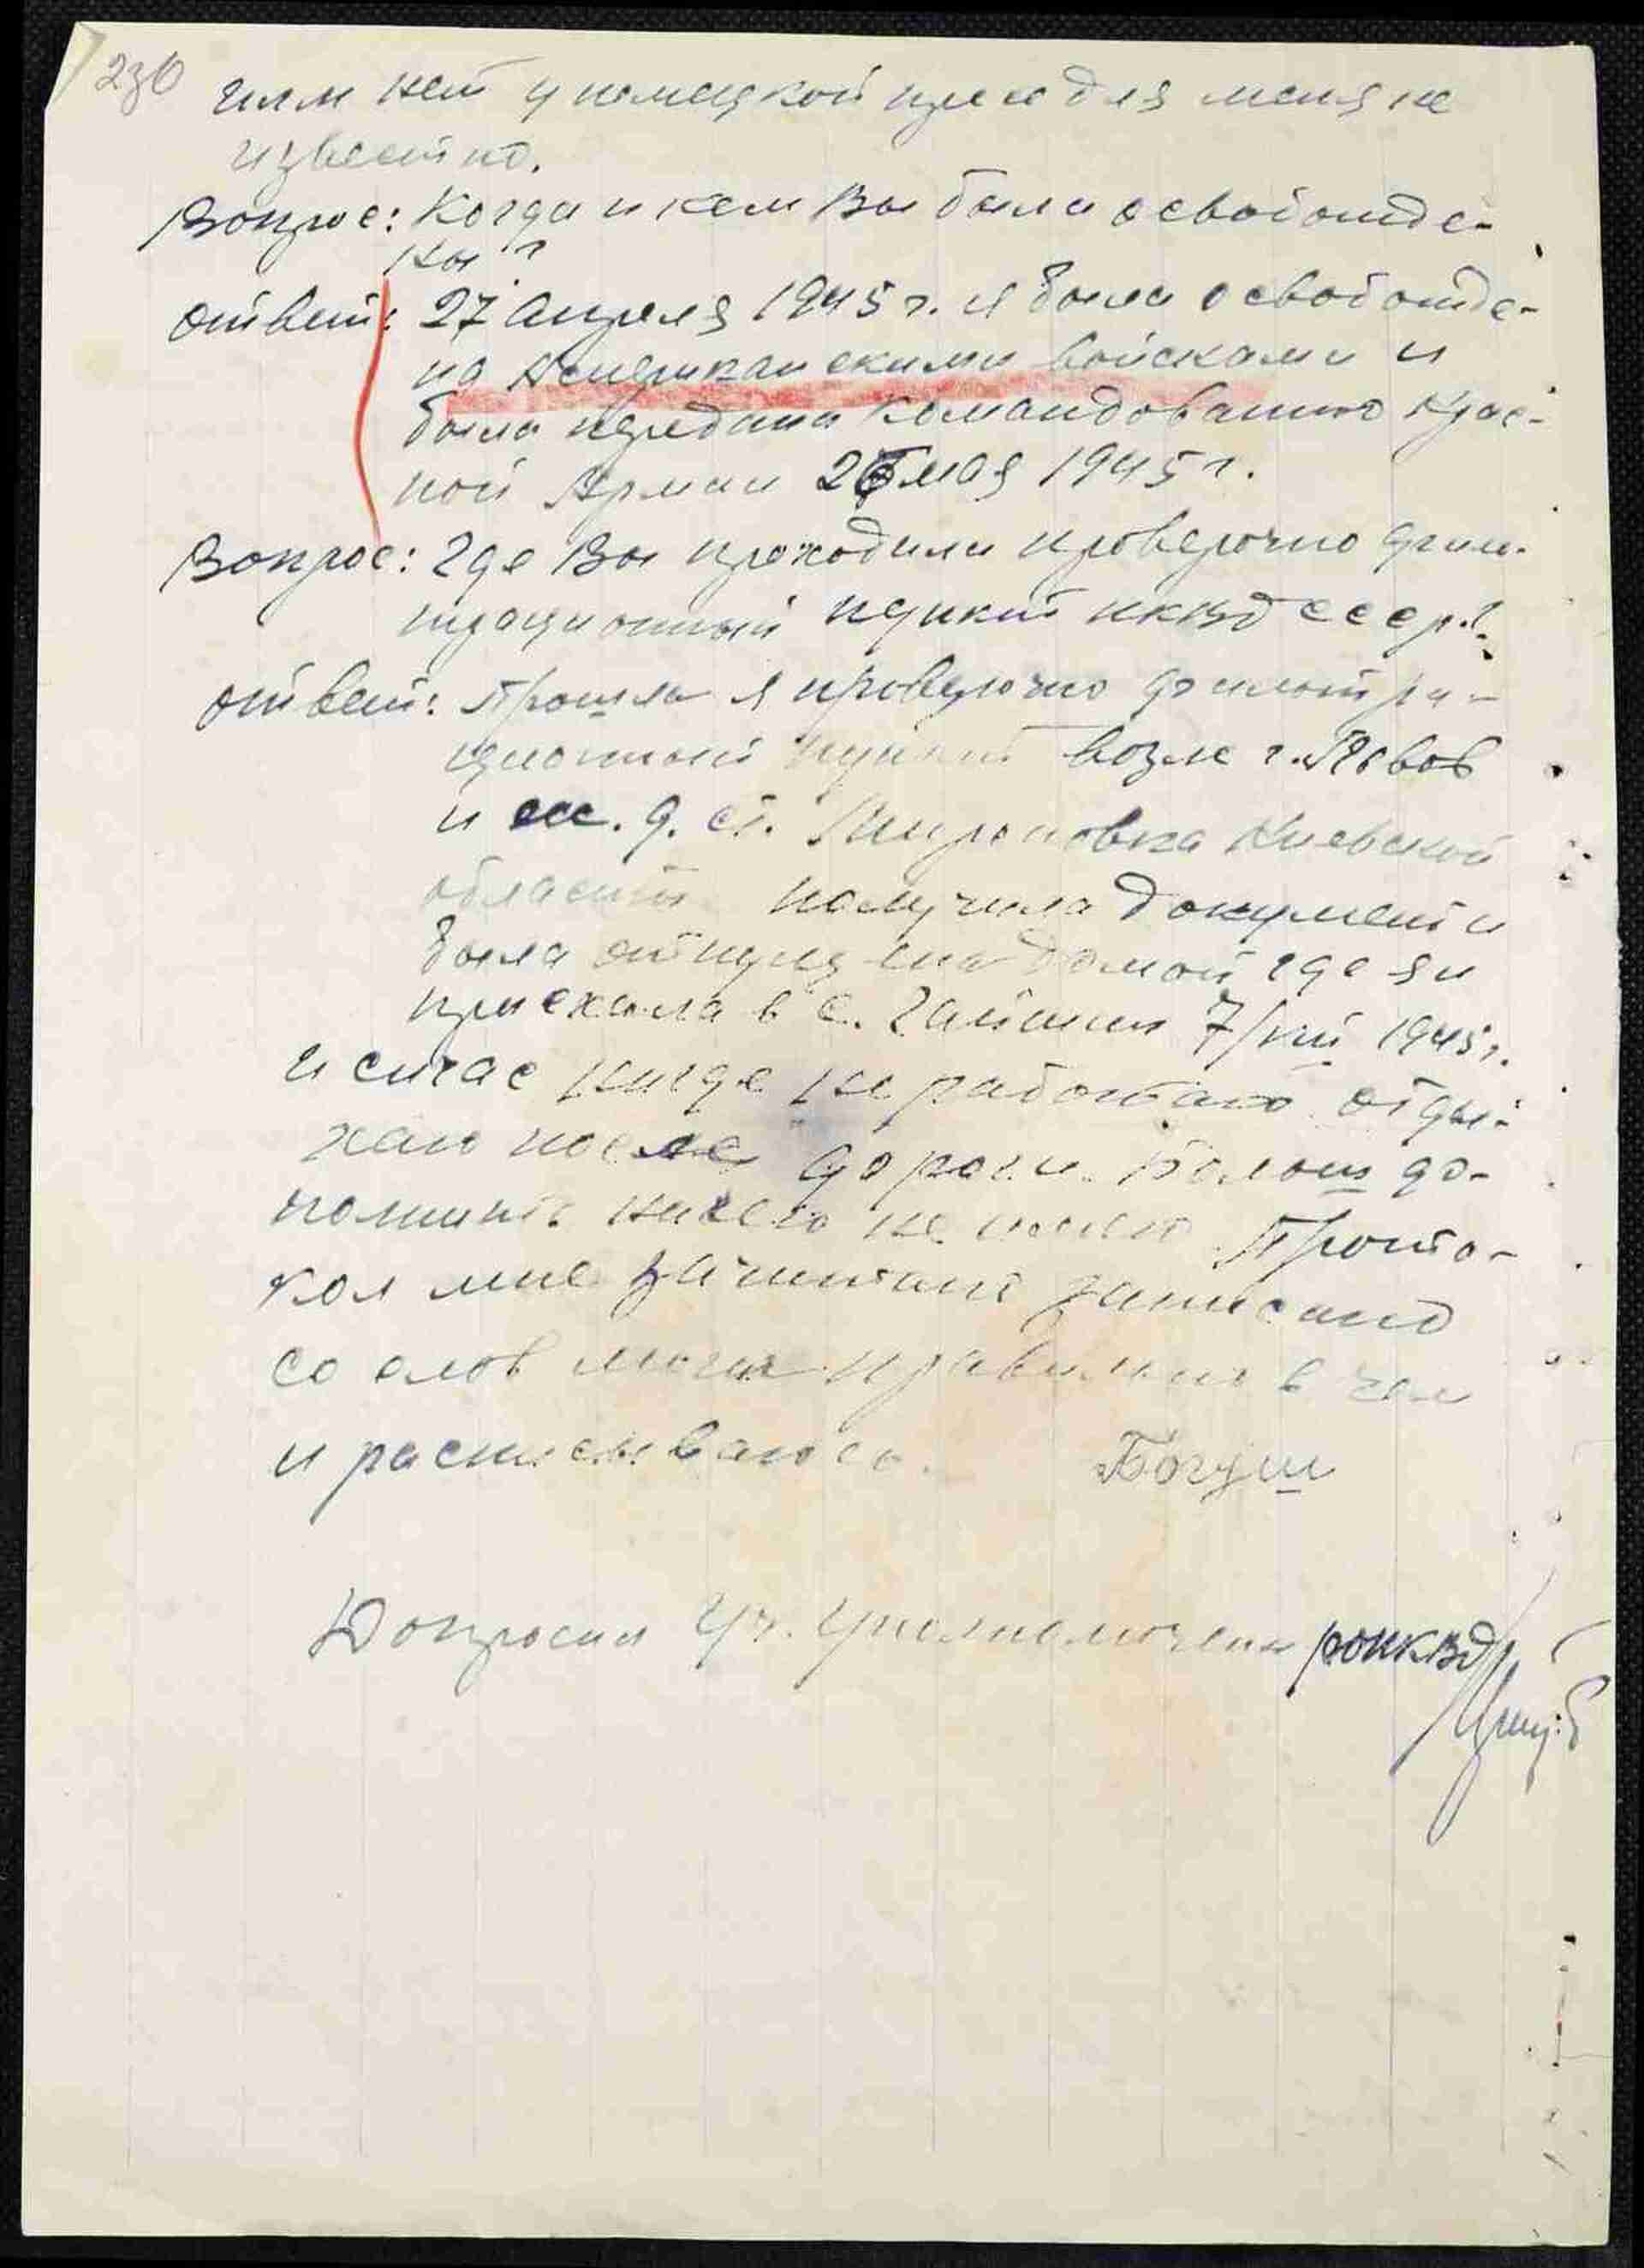 230
или нет у немецкой армии для меня не
известно.
Вопрос: Когда и кем Вы были освобожде-
ны?
ответ: 27 апреля 1945 г. я была освобожде-
на Американскими войсками и
была передана командованию Крас-
ной Армии 26 мая 1945 г.
Вопрос: Где Вы проходили проверочно филь-
трационный пункт НКВД СССР?
ответ: Прошла я проверочно фильтра-
ционный пункт возле г. Львов
и ж. д. ст. Мироновка Киевской
области получила документ и
была отпущена домой где я и
приехала в с. Гайшин 7/VIII 1945 г.
и сичас нигде не работаю отды-
хаю после дороги. Больш до-
полнить ничего не имею Прото-
кол мне зачитан записано
со слов моих правильно в чем
и расписываюсь. Богуш
Допросил Уч. Уполномочен РОНКВД